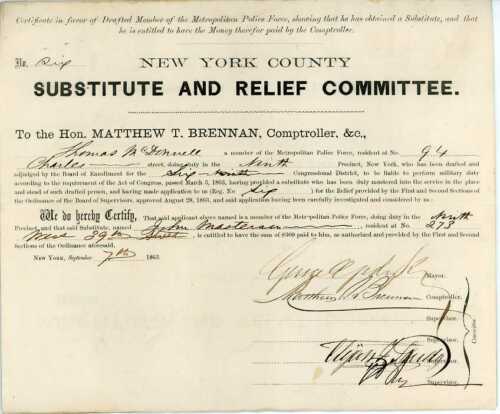 Certificate in favor of Drafted Member of the Metropolitan Police Force, showing that he has obtained a Substitute, and that
he is entitled to have the Money therefor paid by the Comptroller.
No. Six NEW YORK COUNTY
SUBSTITUTE AND RELIEF COMMITTEE.
To the Hon. MATTHEW T. BRENNAN, Comptroller, &c.,
Thomas McDonnell a member of the Metropolitan Police Force, resident at No. 94
Charles street, doing duty in the Ninth Precinct, New York, who has been drafted and
adjudged by the Board of Enrollment for the Congressional District, to be liable to perform military duty
according to the requirement of the Act of Congress, passed March 3, 1863, having provided a substitute who has been duly mustered into the service in the place
and stead of such drafted person, and having made application to us (Reg. No. Six ) for the Relief provided by the First and Second Sections
of the Ordinance of the Board of Supervisors, approved August 28, 1863, and said application having been carefully investigated and considered by us:
We do hereby Certify, That said applicant above named is a member of the Metropolitan Police Force, doing duty in the Ninth
Precinct, and that said Substitute, named John Masterson resident at No. 273
West 39th Street is entitled to have the sum of $300 paid to him, as authorized and provided by the First and Second
Sections of the Ordinance aforesaid.
New York, September 7th 1863.
Mayor.
Matthew T. Brennan Comptroller.
Supervisor.
Supervisor.
Supervisor.
Committee